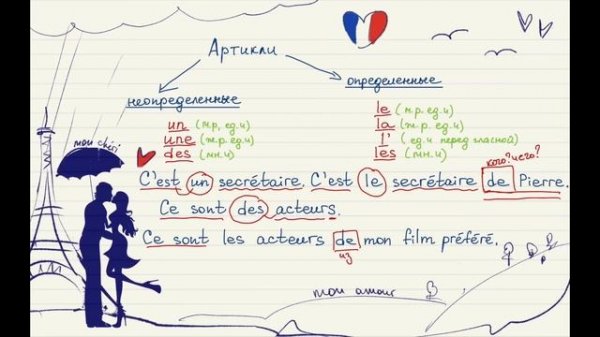 Артикли
неопределенные
определенные
un (м.р, ед.ч)
une (ж.р. ед.ч)
des (мн.ч)
le (м.р. ед.ч)
la (ж.р. ед.ч)
l' (ед.ч. перед гласной)
les (мн.ч)
mon chéri
кого? чего?
C'est un secrétaire. C'est le secrétaire de Pierre.
Ce sont des acteurs.
Ce sont les acteurs de mon film préféré.
из
mon amour